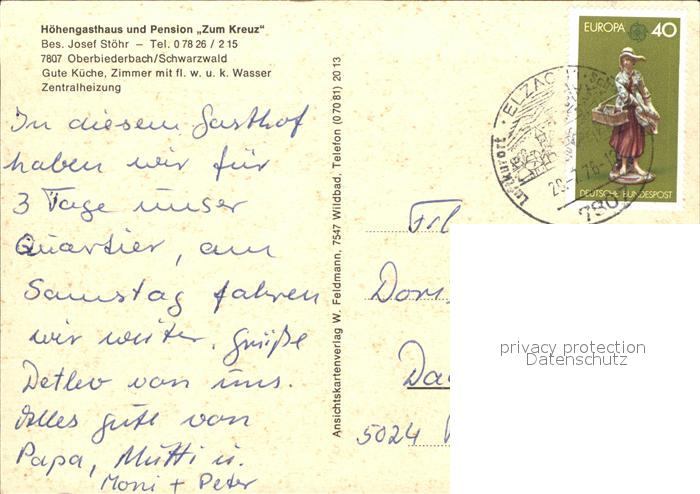 Höhengasthaus und Pension „Zum Kreuz“
Bes. Josef Stöhr – Tel. 0 78 26 / 2 15
7807 Oberbiederbach/Schwarzwald
Gute Küche, Zimmer mit fl. w. u. k. Wasser
Zentralheizung
In diesem Gasthof
haben wir für
3 Tage unser
Quartier, am
Samstag fahren
wir weiter. Grüße
Detlev von uns.
Alles gute von
Papa, Mutti u.
Moni + Peter
Ansichtskartenverlag W. Feldmann, 7547 Wildbad, Telefon (0 70 81) 20 13
EUROPA 40
DEUTSCHE BUNDESPOST
Luftkurort
ELZACH
780
Frl
Dori
5024
privacy protection
Datenschutz